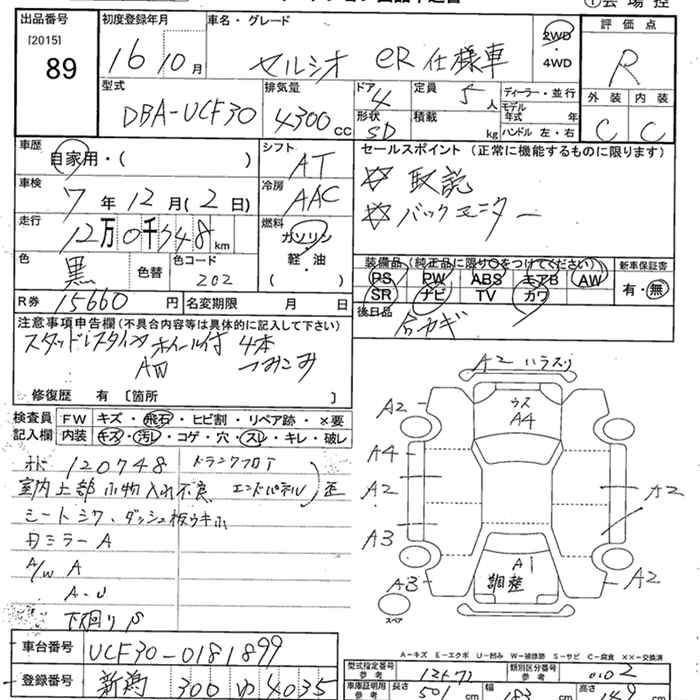 出品番号 初度登録年月 車名・グレード 評価点
[2015]
89
16 10月 セルシオ eR仕様車 2WD・4WD R
型式 排気量 ドア 4 定員 5人 ディーラー・並行 外装 内装
DBA-UCF30 4300cc 形状 SD 積載 kg モデル年式 年 ハンドル 左・右 C C
車歴 自家用・( ) シフト AT
セールスポイント(正常に機能するものに限ります)
車検 7年12月(2日) 冷房 AAC
☆ 取説
☆ バックモニター
走行 12万0千748km 燃料 ガソリン・軽・油 ( )
色 黒 色替 色コード 202
装備品(純正品に限り○をつけてください) 新車保証書
PS PW ABS エアB AW 有・無
SR ナビ TV カワ
R券 15660円 名変期限 月 日
後日品 合カギ
注意事項申告欄(不具合内容等は具体的に記入して下さい)
スタッドレスタイヤ ホイール付 4本
AW つみこみ
修復歴 有〔箇所 〕
検査員 FW キズ・飛石・ヒビ割・リペア跡・×要
記入欄 内装 キズ・汚レ・コゲ・穴・スレ・キレ・破レ
120748 トランクフロア
室内上部小物入れ不良 エンドパネル 歪
シートシワ、ダッシュ板ウキ小
ミラーA
A/W A
A-U
下回りS
A2 ハラスリ
A2 ウス A4
A4
A2 A2
A3
A1 調整
A3 A2
スペア
A-キズ E-エクボ U-凹み W-補修跡 S-サビ C-腐食 ××-交換済
車台番号 UCF30-0181899
登録番号 新潟 300 ゆ 4035
型式指定番号 参考 類別区分番号 参考 0102
車庫証明用 参考 長さ 501cm 幅 183cm 高さ 149cm